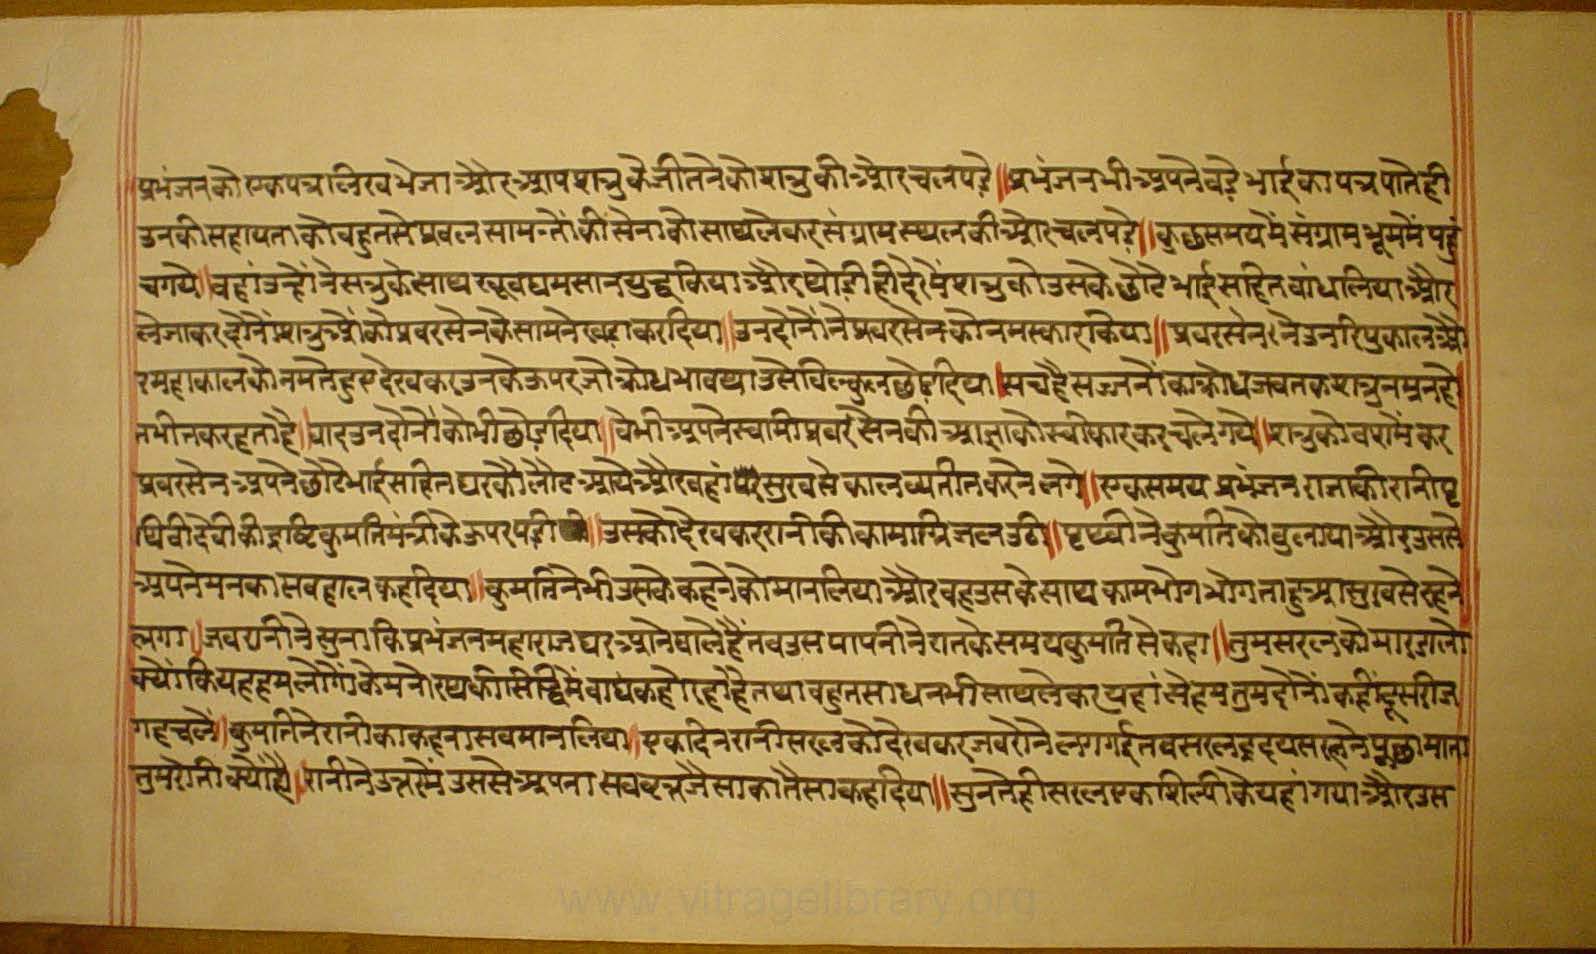 प्रभंजनको एक पत्र लिख भेजा और आप शत्रुके जीतनेको शत्रुकी ओर चल पड़े॥ प्रभंजन भी अपने बड़े भाईका पत्र पाते ही
उनकी सहायताको बहुतसे प्रबल सामन्तोंकी सेनाको साथ लेकर संग्रामस्थलकी ओर चल पड़े॥ कुछ समयमें संग्राम भूममें पहुं
च गये॥ वहां उन्होंने सत्रुके साथ खूब घमसान युद्ध किया और थोड़ी ही देरमें शत्रुको उसके छोटे भाई सहित बांध लिया और
लेजाकर दोनों शत्रुओंको प्रवरसेनके सामने खड़ा कर दिया॥ उन दोनोंने प्रवरसेनको नमस्कार किया॥ प्रवरसेनने उन रिपुकाल औ
र महाकालको नमते हुए देखकर उनके ऊपर जो क्रोधभाव था उसे बिल्कुल छोड़ दिया। सच है सज्जनोंका क्रोध जबतक शत्रु नम्र न हो
तभी तक रहता है। बाद उन दोनोंको भी छोड़ दिया॥ वे भी अपने स्वामी प्रवरसेनकी आज्ञाको स्वीकार कर चले गये॥ शत्रुको वशमें कर
प्रवरसेन अपने छोटे भाई सहित घरको लौट आये और वहां सुखसे काल व्यतीत करने लगे॥ एक समय प्रभंजन राजाकी रानी पृ
थिवी देवीकी दृष्टि कुमति मंत्रीके ऊपर पड़ी॥ उसको देखकर रानीकी कामाग्नि जल उठी॥ पृथ्वीने कुमतिको बुलाया और उससे
अपने मनका सब हाल कह दिया॥ कुमतिने भी उसके कहनेको मान लिया और वह उसके साथ कामभोग भोगता हुआ सुखसे रहने
लगा॥ जब रानीने सुना कि प्रभंजन महाराज घर आनेवाले हैं तब उस पापनीने रातके समय कुमतिसे कहा॥ तुम सरलको मार डालो
क्योंकि यह हम लोगोंके मनोरथकी सिद्धिमें बाधक हो रहा है तथा बहुतसा धन भी साथ लेकर यहांसे हम तुम दोनों कहीं दूसरी ज
गह चलें॥ कुमतिने रानीका कहना सब मान लिया॥ एक दिन रानी सरलको देखकर जब रोने लग गई तब सरल हृदय सरलने पूछा माता
तुम रोती क्यों है॥ रानीने उत्तरमें उससे अपना सब वृत्त जैसा का तैसा कह दिया॥ सुनते ही सरल एक शिल्पीके यहां गया और उस
www.vitragelibrary.org